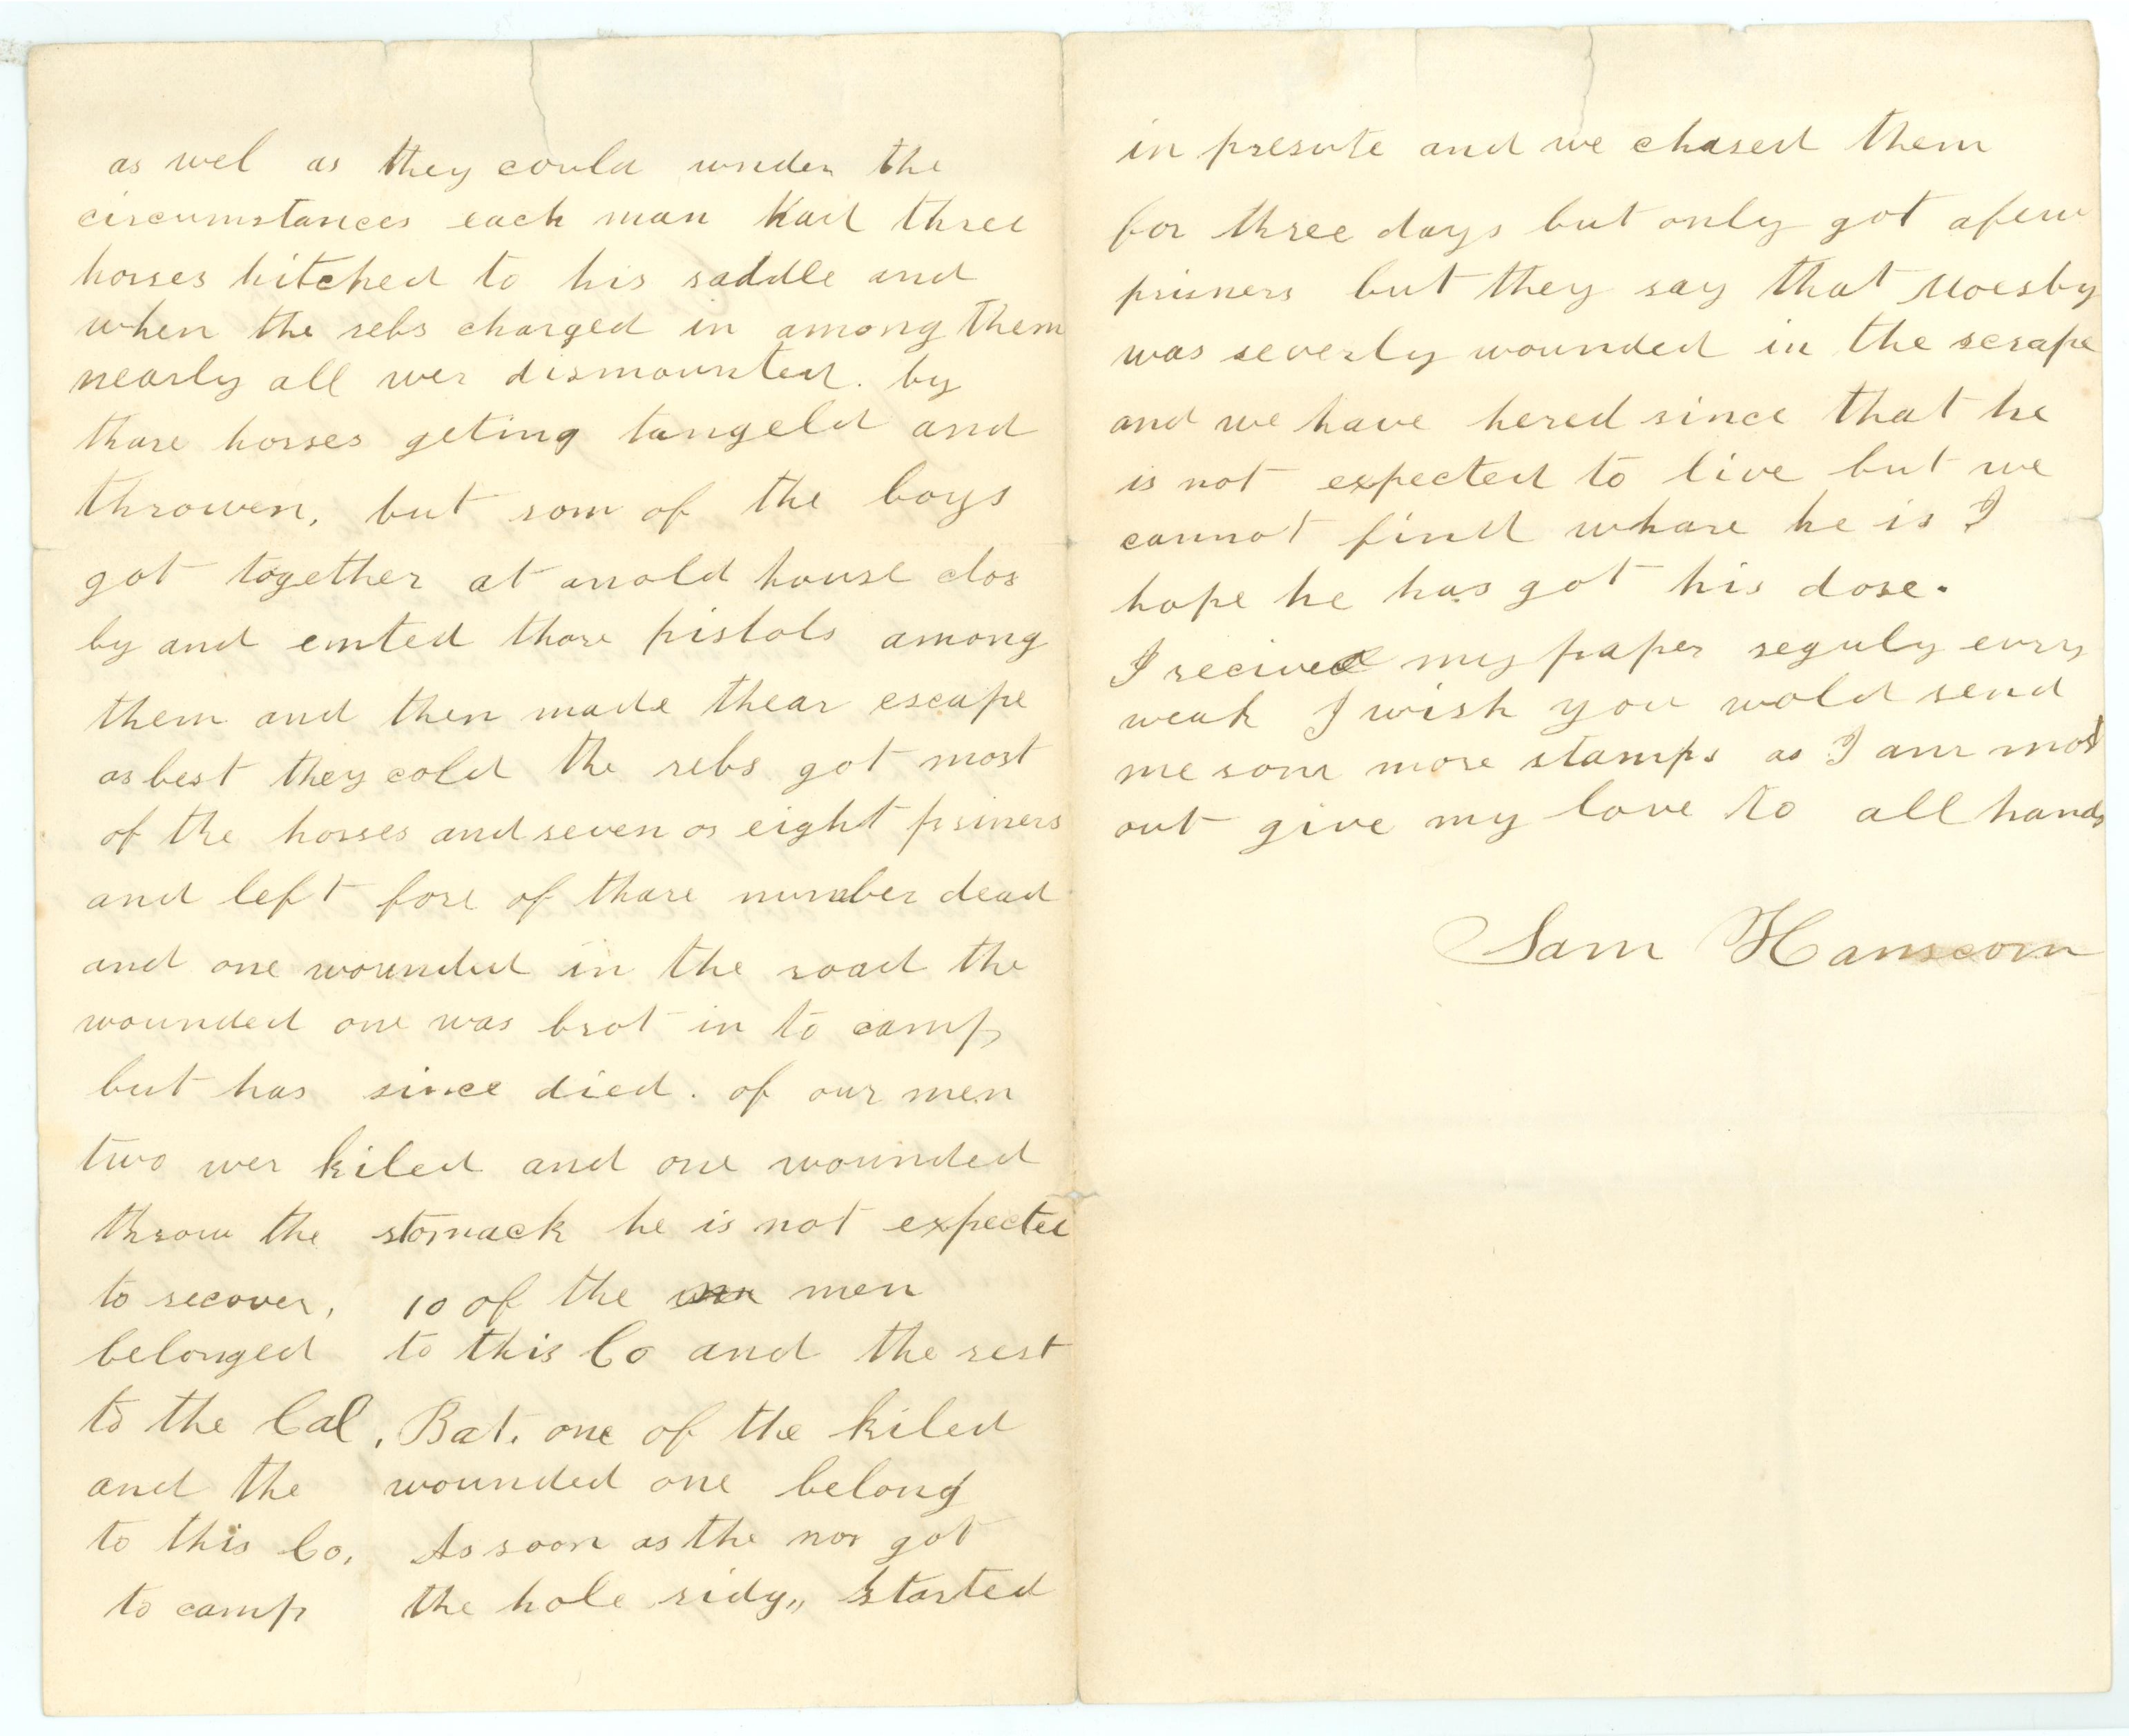 as wel as they could under the
circumstances each man had three
horses hitched to his saddle and
when the rebs charged in among them
nearly all wer dismounted. by
thare horses geting tangeld and
throwen, but som of the boys
got together at anold house clos
by and emted thare pistols among
them and then made thear escape
as best they cold the rebs got most
of the horses and seven or eight prsiners
and left fore of thare number dead
and one wounded in the road the
wounded one was brot in to camp
but has since died. of our men
two wer kiled and one wounded
throw the stomack he is not expected
to recover, 10 of the men
belonged to this Co and the rest
to the Cal, Bat. one of the kiled
and the wounded one belong
to this Co, As soon as the got
to camp the hole ridg,, started
in presute and we chased them
for three days but only got afew
prisners but they say that Moesby
was severly wounded in the scrape
and we have hered since that he
is not expected to live but we
cannot find whare he is I
hope he has got his dose.
I recived my paper reguly evry
weak I wish you wold send
me som more stamps as I am most
out give my love to all hands
Sam Hanscom